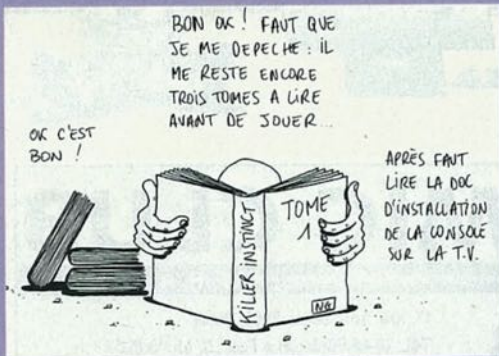 BON OK ! FAUT QUE
JE ME DEPECHE : IL
ME RESTE ENCORE
TROIS TOMES A LIRE
AVANT DE JOUER...
OK C'EST
BON !
APRÈS FAUT
LIRE LA DOC
D'INSTALLATION
DE LA CONSOLE
SUR LA T.V.
KILLER INSTINCT
TOME
1